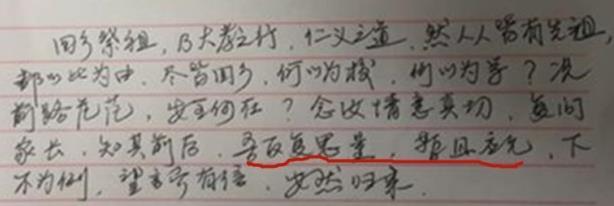 回乡祭祖，乃大孝之行，仁义之道，然人人皆有先祖，
都以此为由，尽皆回乡，何以为校，何以为学？况
前路茫茫，安至何在？念汝情意真切，复问
家长，知其前后，吾反复思量，暂且应允，下
不为例，望言而有信，安然归来。